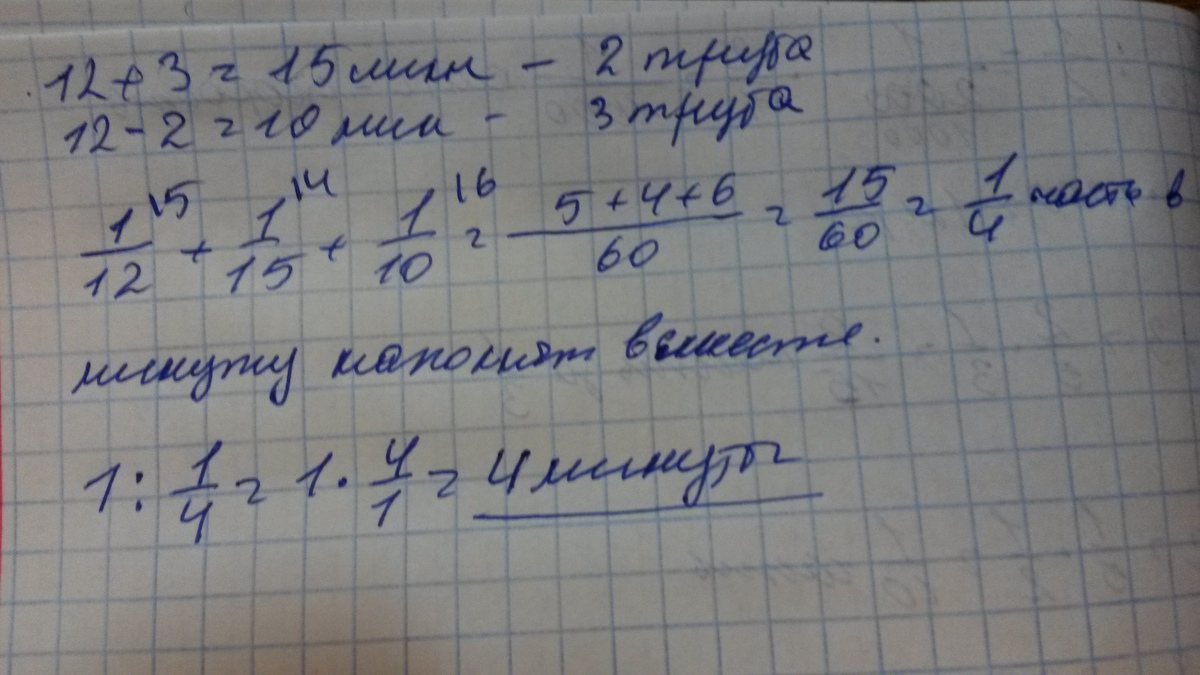 12+3=15мин - 2 труба
12-2=10мин - 3 труба
1/12 \5 + 1/15 \4 + 1/10 \6 = 5+4+6/60 = 15/60 = 1/4 часть в
минуту наполнят вместе.
1: 1/4 = 1· 4/1 = 4 минуты